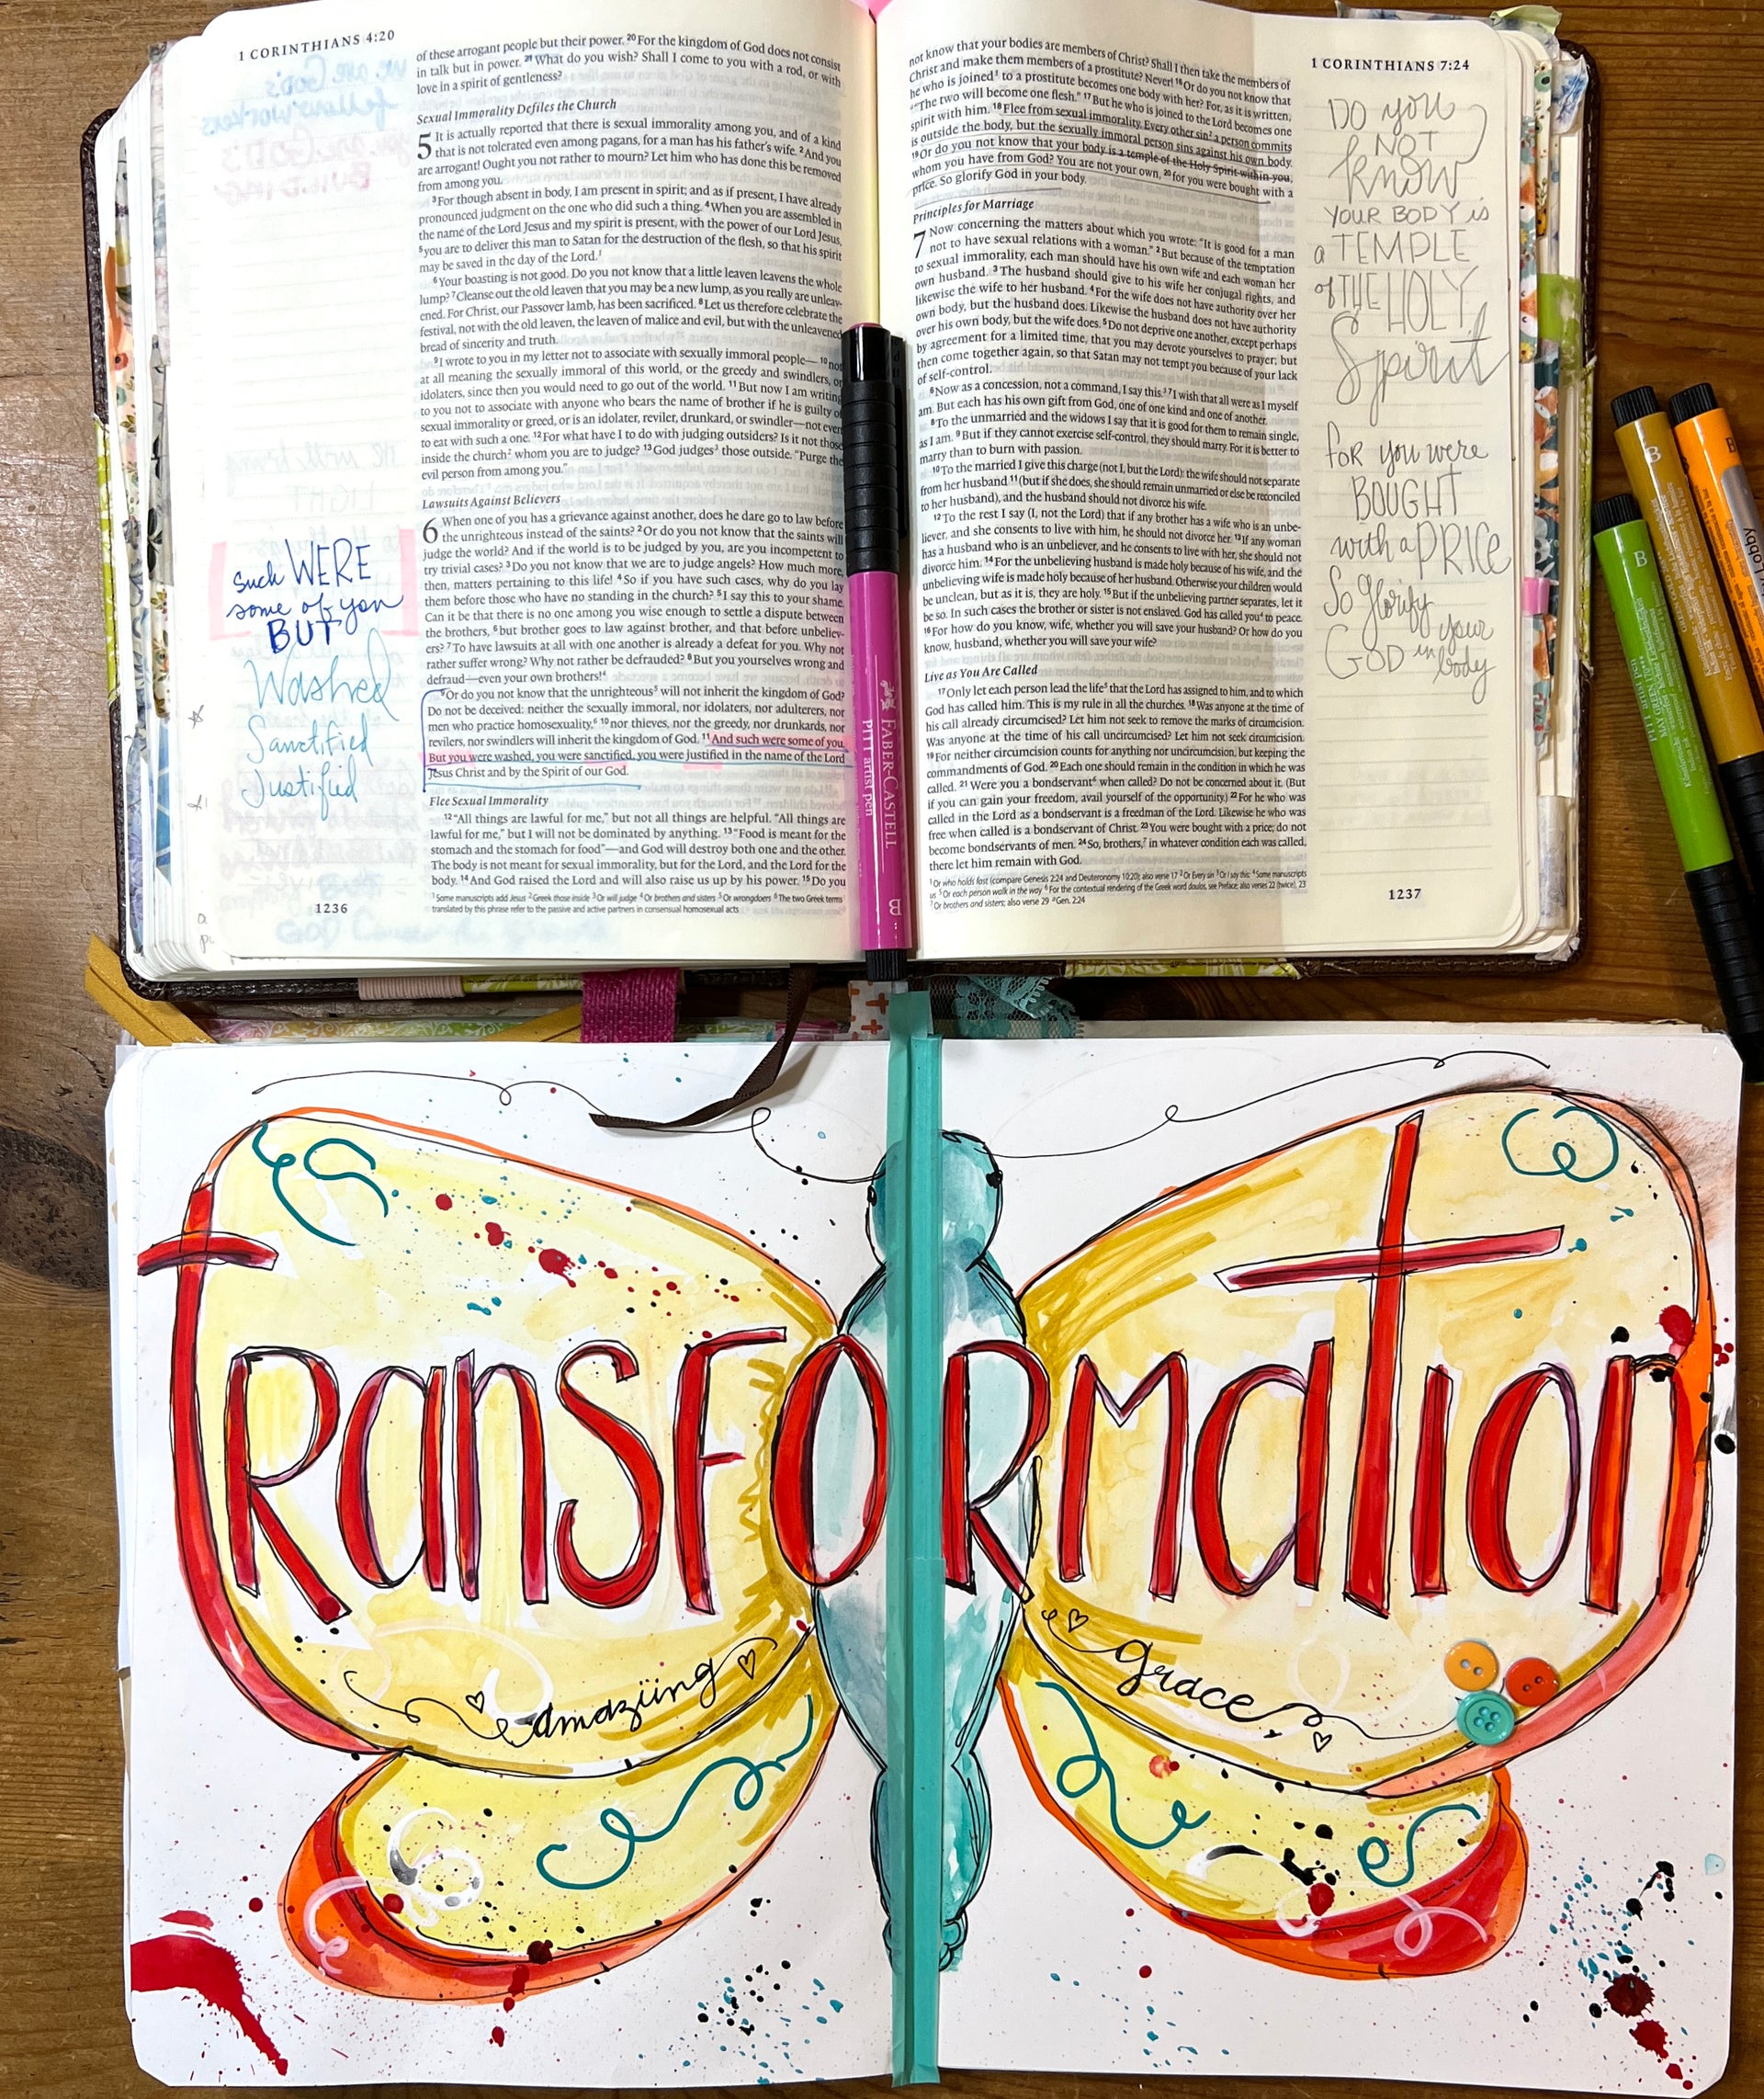 1 CORINTHIANS 4:20
of these arrogant people but their power. 20 For the kingdom of God does not consist
in talk but in power. 21 What do you wish? Shall I come to you with a rod, or with
love in a spirit of gentleness?
Sexual Immorality Defiles the Church
5 It is actually reported that there is sexual immorality among you, and of a kind
that is not tolerated even among pagans, for a man has his father's wife. 2 And you
are arrogant! Ought you not rather to mourn? Let him who has done this be removed
from among you.
3 For though absent in body, I am present in spirit; and as if present, I have already
pronounced judgment on the one who did such a thing. 4 When you are assembled in
the name of the Lord Jesus and my spirit is present, with the power of our Lord Jesus,
5 you are to deliver this man to Satan for the destruction of the flesh, so that his spirit
may be saved in the day of the Lord.1
6 Your boasting is not good. Do you not know that a little leaven leavens the whole
lump? 7 Cleanse out the old leaven that you may be a new lump, as you really are unleav-
ened. For Christ, our Passover lamb, has been sacrificed. 8 Let us therefore celebrate the
festival, not with the old leaven, the leaven of malice and evil, but with the unleavened
bread of sincerity and truth.
9 I wrote to you in my letter not to associate with sexually immoral people— 10 not
at all meaning the sexually immoral of this world, or the greedy and swindlers, or
idolaters, since then you would need to go out of the world. 11 But now I am writing
to you not to associate with anyone who bears the name of brother if he is guilty of
sexual immorality or greed, or is an idolater, reviler, drunkard, or swindler—not even
to eat with such a one. 12 For what have I to do with judging outsiders? Is it not those
inside the church2 whom you are to judge? 13 God judges3 those outside. "Purge the
evil person from among you."
Lawsuits Against Believers
6 When one of you has a grievance against another, does he dare go to law before
the unrighteous instead of the saints? 2 Or do you not know that the saints will
judge the world? And if the world is to be judged by you, are you incompetent to
try trivial cases? 3 Do you not know that we are to judge angels? How much more,
then, matters pertaining to this life! 4 So if you have such cases, why do you lay
them before those who have no standing in the church? 5 I say this to your shame.
Can it be that there is no one among you wise enough to settle a dispute between
the brothers, 6 but brother goes to law against brother, and that before unbeliev-
ers? 7 To have lawsuits at all with one another is already a defeat for you. Why not
rather suffer wrong? Why not rather be defrauded? 8 But you yourselves wrong and
defraud—even your own brothers!4
9 Or do you not know that the unrighteous5 will not inherit the kingdom of God?
Do not be deceived: neither the sexually immoral, nor idolaters, nor adulterers, nor
men who practice homosexuality,6 10 nor thieves, nor the greedy, nor drunkards, nor
revilers, nor swindlers will inherit the kingdom of God. 11 And such were some of you.
But you were washed, you were sanctified, you were justified in the name of the Lord
Jesus Christ and by the Spirit of our God.
Flee Sexual Immorality
12 "All things are lawful for me," but not all things are helpful. "All things are
lawful for me," but I will not be dominated by anything. 13 "Food is meant for the
stomach and the stomach for food"—and God will destroy both one and the other.
The body is not meant for sexual immorality, but for the Lord, and the Lord for the
body. 14 And God raised the Lord and will also raise us up by his power. 15 Do you
1 Some manuscripts add Jesus 2 Greek those inside 3 Or will judge 4 Or brothers and sisters 5 Or wrongdoers 6 The two Greek terms
translated by this phrase refer to the passive and active partners in consensual homosexual acts
1236
Such WERE
some of you
BUT
Washed
Sanctified
Justified
not know that your bodies are members of Christ? Shall I then take the members of
Christ and make them members of a prostitute? Never! 16 Or do you not know that
he who is joined1 to a prostitute becomes one body with her? For, as it is written,
"The two will become one flesh." 17 But he who is joined to the Lord becomes one
spirit with him. 18 Flee from sexual immorality. Every other sin2 a person commits
is outside the body, but the sexually immoral person sins against his own body.
19 Or do you not know that your body is a temple of the Holy Spirit within you,
whom you have from God? You are not your own, 20 for you were bought with a
price. So glorify God in your body.
Principles for Marriage
7 Now concerning the matters about which you wrote: "It is good for a man
not to have sexual relations with a woman." 2 But because of the temptation
to sexual immorality, each man should have his own wife and each woman her
own husband. 3 The husband should give to his wife her conjugal rights, and
likewise the wife to her husband. 4 For the wife does not have authority over her
own body, but the husband does. Likewise the husband does not have authority
over his own body, but the wife does. 5 Do not deprive one another, except perhaps
by agreement for a limited time, that you may devote yourselves to prayer; but
then come together again, so that Satan may not tempt you because of your lack
of self-control.
6 Now as a concession, not a command, I say this.3 7 I wish that all were as I myself
am. But each has his own gift from God, one of one kind and one of another.
8 To the unmarried and the widows I say that it is good for them to remain single,
as I am. 9 But if they cannot exercise self-control, they should marry. For it is better to
marry than to burn with passion.
10 To the married I give this charge (not I, but the Lord): the wife should not separate
from her husband 11 (but if she does, she should remain unmarried or else be reconciled
to her husband), and the husband should not divorce his wife.
12 To the rest I say (I, not the Lord) that if any brother has a wife who is an unbe-
liever, and she consents to live with him, he should not divorce her. 13 If any woman
has a husband who is an unbeliever, and he consents to live with her, she should not
divorce him. 14 For the unbelieving husband is made holy because of his wife, and the
unbelieving wife is made holy because of her husband. Otherwise your children would
be unclean, but as it is, they are holy. 15 But if the unbelieving partner separates, let it
be so. In such cases the brother or sister is not enslaved. God has called you4 to peace.
16 For how do you know, wife, whether you will save your husband? Or how do you
know, husband, whether you will save your wife?
Live as You Are Called
17 Only let each person lead the life5 that the Lord has assigned to him, and to which
God has called him. This is my rule in all the churches. 18 Was anyone at the time of
his call already circumcised? Let him not seek to remove the marks of circumcision.
Was anyone at the time of his call uncircumcised? Let him not seek circumcision.
19 For neither circumcision counts for anything nor uncircumcision, but keeping the
commandments of God. 20 Each one should remain in the condition in which he was
called. 21 Were you a bondservant6 when called? Do not be concerned about it. (But
if you can gain your freedom, avail yourself of the opportunity.) 22 For he who was
called in the Lord as a bondservant is a freedman of the Lord. Likewise he who was
free when called is a bondservant of Christ. 23 You were bought with a price; do not
become bondservants of men. 24 So, brothers,7 in whatever condition each was called,
there let him remain with God.
1 Or who holds fast (compare Genesis 2:24 and Deuteronomy 10:20); also verse 17 2 Or Every sin 3 Or I say this: 4 Some manuscripts
us 5 Or each person walk in the way 6 For the contextual rendering of the Greek word doulos, see Preface; also verses 22 (twice), 23
7 Or brothers and sisters; also verse 29 8 Gen. 2:24
1237
1 CORINTHIANS 7:24
DO you
NOT
Know
YOUR BODY is
a TEMPLE
of THE HOLY
Spirit
for you were
BOUGHT
with a PRICE
So glorify
GOD in your
body
FABER-CASTELL
PITT artist pen
B
B
B
B
transformation
amazing
grace